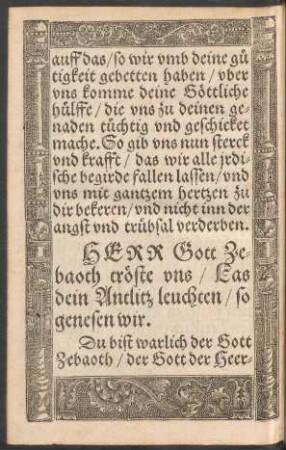 auff das/so wir vmb deine gů
tigkeit gebetten haben / vber
vns komme deine Göttliche
hülffe / die vns zu deinen ge-
naden tüchtig vnd geschicket
mache. So gib vns nun sterck
vnd krafft / das wir alle jrdi-
sche begirde fallen lassen/vnd
vns mit gantzem hertzen zu
dir bekeren/vnd nicht inn der
angst vnd trübsal verderben.
HERR Gott Ze-
baoth tröste vns / Las
dein Antlitz leuchten / so
genesen wir.
Du bist warlich der Gott
Zebaoth / der Gott der Heer-